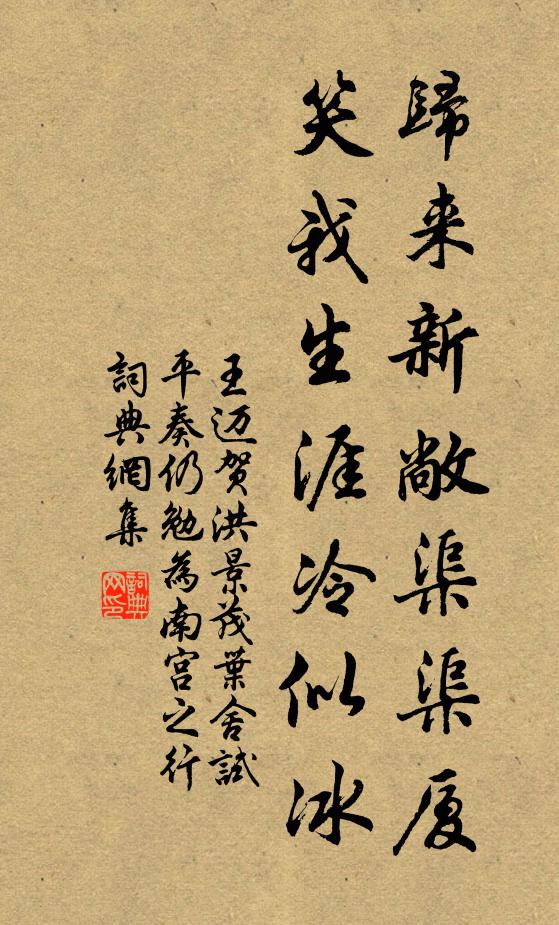 歸来新敞渠渠厦
笑我生涯冷似冰
王迈贺洪景茂葉舍試
平奏仍勉為南宫之行
詞典網集
詞典
网印